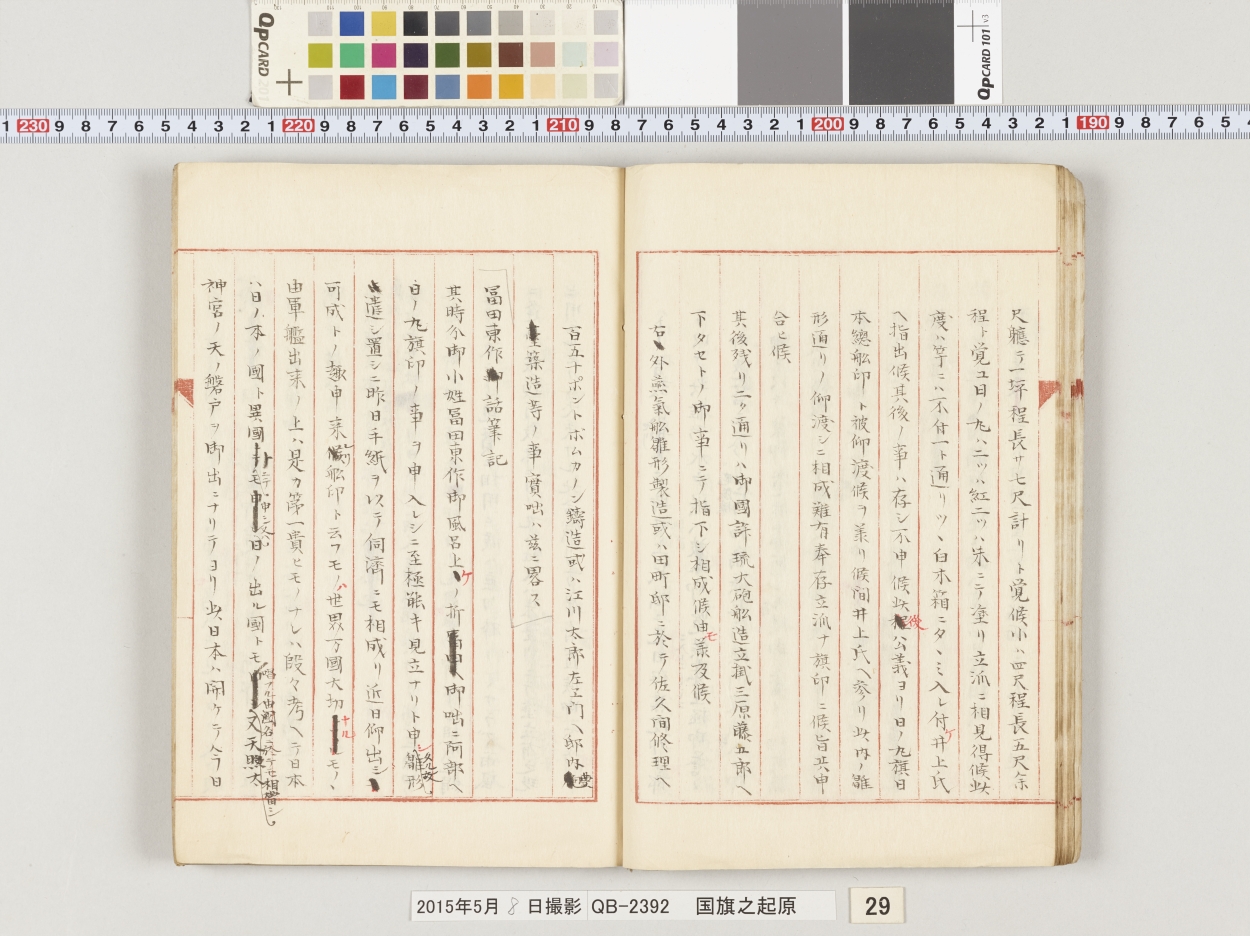 尺聴ニテ一坪程長サ七尺計リト覚候小ハ四尺程長五尺余
程ト覚ユ日ノ丸ハ二ツハ紅二ツハ朱ニテ塗リ立派ニ相見得候此
度ハ竿ニハ不付一ト通リツヽ白木箱ニタヽミ入レ付ケ井上氏
ヘ指出候其後ノ事ハ存シ不申候此後公義ヨリ日ノ丸旗日
本總舩印ト被仰渡候ヲ美リ候間井上氏ヘ参リ此内ノ雛
形通リノ仰渡シニ相成難有奉存立派ナ旗印ニ候旨共申
合ヒ候
其後残リ二タ通リハ御國許琉大砲舩造立掛三原藤五郎ヘ
下タセトノ御事ニテ指下シ相成候由モ美及候
右ノ外蒸氣舩雛形製造或ハ田町邸ニ於テ佐久間修理ヘ
百五十ポントボムカノン鑄造或ハ江川太郎左エ門ヘ邸内
築造等ノ事實咄ハ茲ニ畧ス
冨田東作話筆記
其時分御小姓冨田東作御風呂上ケノ折ヘ御咄ニ阿部ヘ
日ノ丸旗印ノ事ヲ申入レシニ至極能キ見立ナリト申シ雛形
遣シ置シニ昨日手紙ヲ以テ伺濟ニモ相成リ近日仰出シ
可成トノ趣申来舩印ト云フモノハ世界万國大切ナルモノヽ
由軍艦出来ノ上ハ是カ第一貴ヒモノナレハ段々考ヘテ日本
ハ日ノ本ノ國ト異國ニテモ申シ又ハ日ノ出ル國トモ唱フル由國名ニ於テモ相當シ又天照太
神宮ノ天ノ磐戸ヲ御出ニナリテヨリ此日本ハ開ケテ今日
QPCARD 101 v3
2015年5月8日撮影 QB-2392 国旗之起原
29